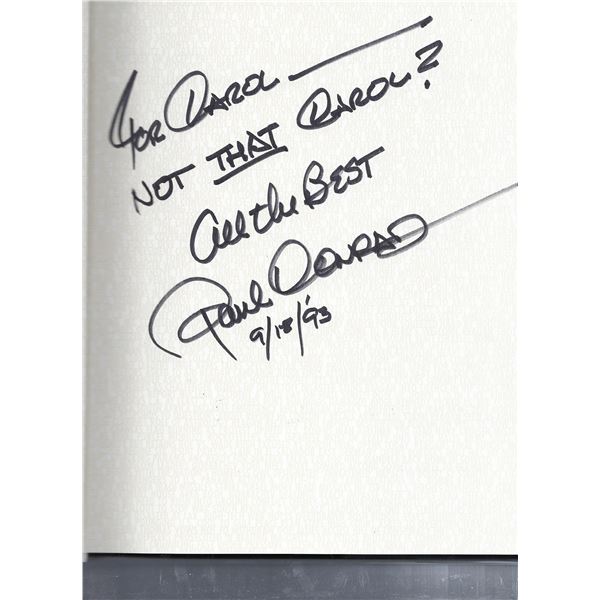 FOR CAROL —
NOT THAT CAROL?
All the BEST
Paul CONRAD
9/18/'93